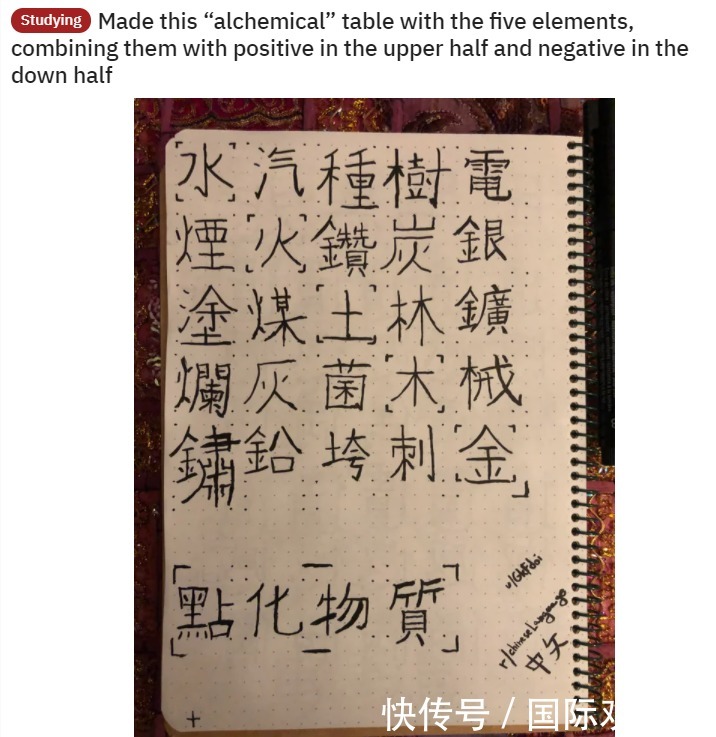 Studying Made this “alchemical” table with the five elements,
combining them with positive in the upper half and negative in the
down half
水 汽 種 樹 電
煙 火 鑽 炭 銀
塗 煤 土 林 鑛
爛 灰 菌 木 械
鏽 鉛 垮 刺 金
點化物質
r/chineselanguage
中文
快传号 / 国际